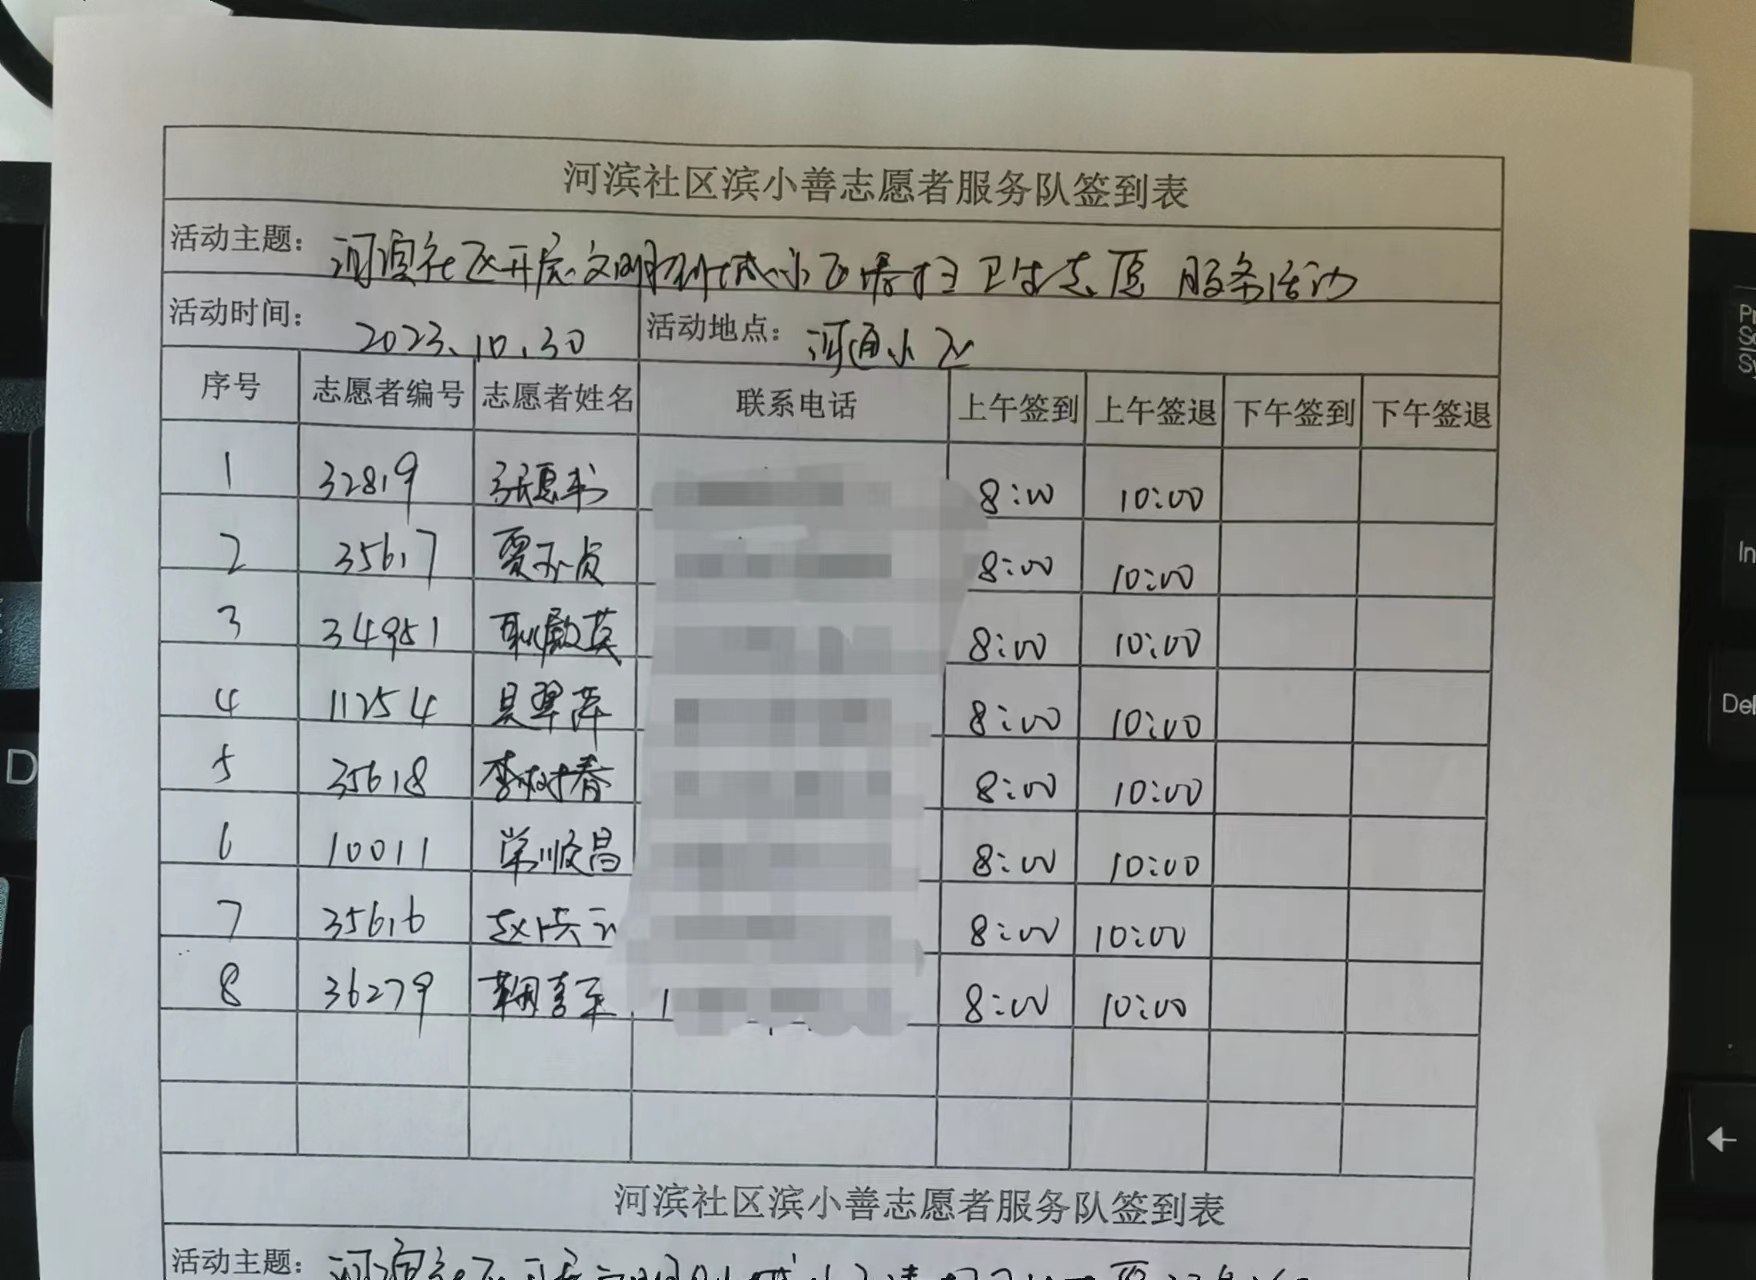 河滨社区滨小善志愿者服务队签到表
活动主题: 河滨社区开展文明创城小区清扫卫生志愿服务活动
活动时间: 2023.10.30 活动地点: 河通小区
序号 志愿者编号 志愿者姓名 联系电话 上午签到 上午签退 下午签到 下午签退
1 32819 张惠书 8:00 10:00
2 35617 贾玉贞 8:00 10:00
3 34951 耿殿英 8:00 10:00
4 11254 吴翠萍 8:00 10:00
5 35618 李树春 8:00 10:00
6 10011 常顺昌 8:00 10:00
7 35616 8:00 10:00
8 36279 1 8:00 10:00
河滨社区滨小善志愿者服务队签到表
活动主题: